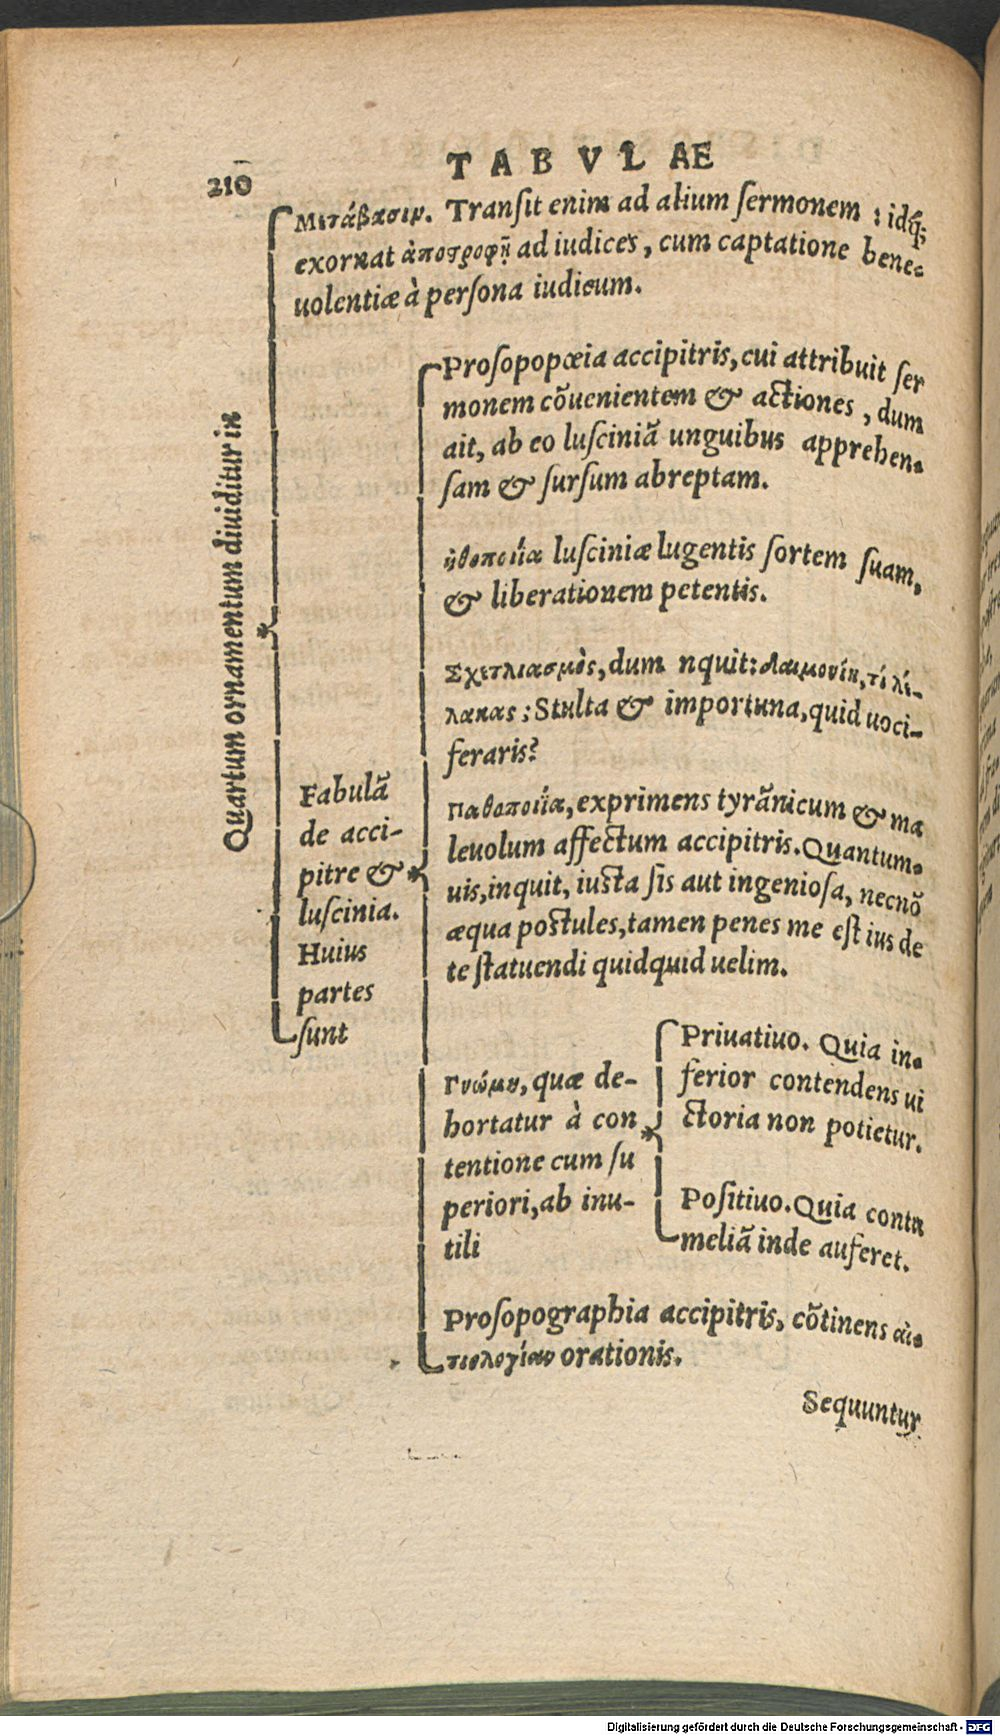 210
TABVLAE
Quartum ornamentum diuiditur in
Μετάβασιν. Tranſit enim ad alium ſermonem : idq́;
exornat ἀποστροφῇ ad iudices, cum captatione bene-
uolentiæ à perſona iudicum.
Fabulã
de acci-
pitre &
luſcinia.
Huius
partes
ſunt
Proſopopœia accipitris, cui attribuit ſer
monem cõuenientem & actiones, dum
ait, ab eo luſciniã unguibus apprehen-
ſam & ſurſum abreptam.
ἠθοποιΐα luſciniæ lugentis ſortem ſuam,
& liberationem petentis.
Σχετλιασμὸς, dum nquit: δαιμονίη, τί λέ-
λακας; Stulta & importuna, quid uoci-
feraris?
Παθοποιΐα, exprimens tyrãnicum & ma
leuolum affectum accipitris. Quantum-
uis, inquit, iuſta ſis aut ingenioſa, necnõ
æqua poſtules, tamen penes me eſt ius de
te ſtatuendi quidquid uelim.
Γνώμη, quæ de-
hortatur à con
tentione cum ſu
periori, ab inu-
tili
Priuatiuo. Quia in-
ferior contendens ui
ctoria non potietur.
Poſitiuo. Quia contu
meliã inde auferet.
Proſopographia accipitris, cõtinens αἰ-
τιολογίαν orationis.
Sequuntur
Digitalisierung gefördert durch die Deutsche Forschungsgemeinschaft - DFG